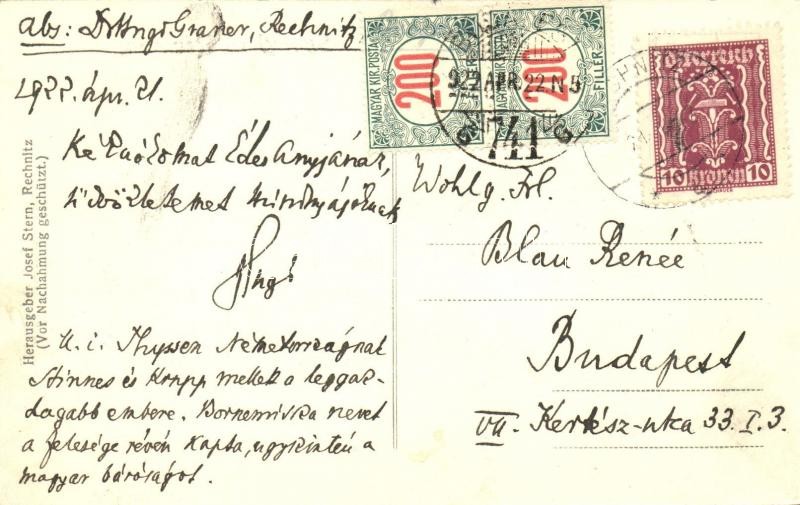 abs: Dr Hugó Graner, Rechnitz
1922. ápr. 21.
Kézcsókomat Édes Anyjának,
üdvözletemet mindnyájóknak
Hugó
U. i. Thyssen Németországnak
Stinnes és Krupp mellett a leggaz-
dagabb embere. Bornemissza nevet
a felesége révén kapta, ugyszintén a
magyar báróságot.
Herausgeber Josef Stern, Rechnitz
(Vor Nachahmung geschützt.)
MAGYAR KIR. POSTA
200
200
FILLÉR
922 APR 22 N 5
741
10
10
Wohlg. Frl.
Blau Renée
Budapest
VII. Kertész-utca 33. I. 3.